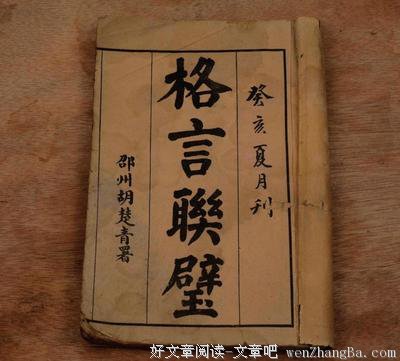 癸亥夏月刊
格言聯璧
邵州胡楚青署
好文章阅读-文章吧 wenZhangBa.com